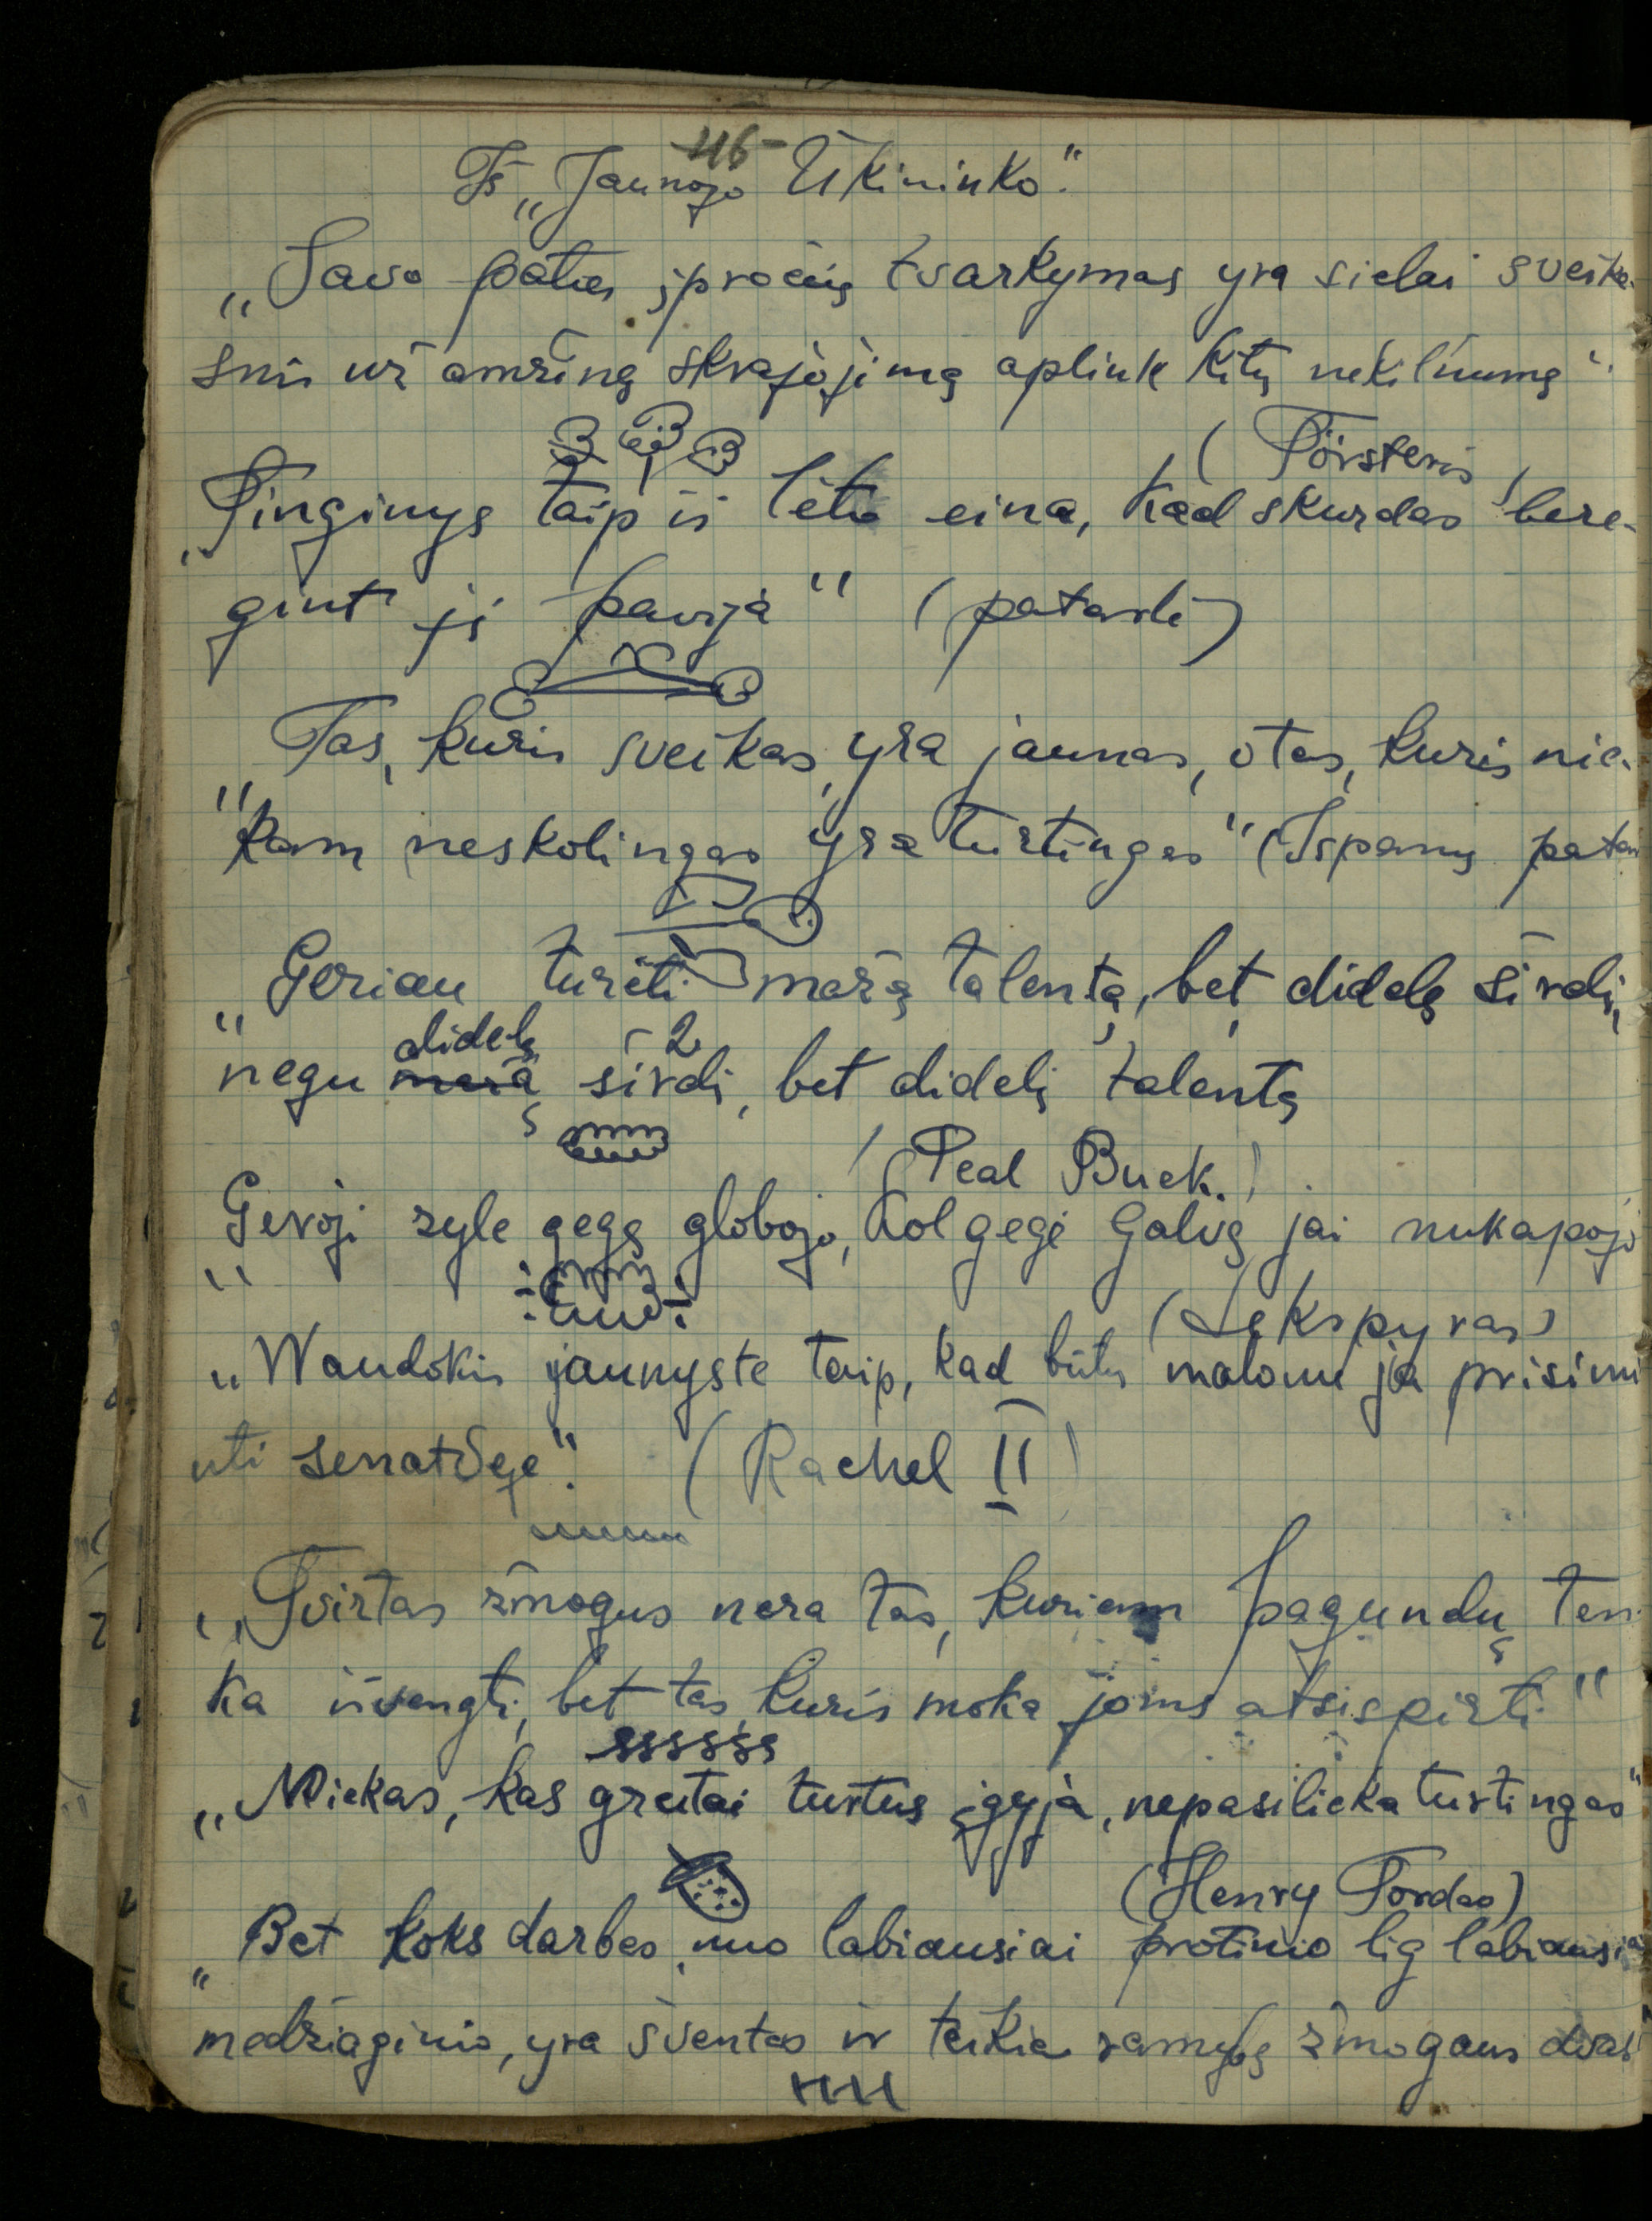 -46-
Iš „Jaunojo Ūkininko“.
„Savo paties įpročių tvarkymas yra sielai sveike-
snis už amžiną skrajojimą aplink kitų nekilnumą“.
(Försteris)
„Tinginys taip iš lėto eina, kad skurdas bere-
gint jį paveja“ (patarlė)
„Tas, kuris sveikas, yra jaunas, o tas, kuris nie-
kam neskolingas yra turtingas“ (Ispanų patar
„Geriau turėti mažą talentą, bet didelę širdį,
didelę
negu mažą širdį, bet didelį talentą
(Peal Buck.)
„Gevoji zylė gegę globojo, kol gegė galvą jai nukapojo
(Šekspyras)
„Naudokis jaunyste taip, kad būtų malonu ja prisimi
nti senatvėje“. (Rachel II)
„Tvirtas žmogus nėra tas, kuriam pagundų ten-
ka išvengti, bet tas, kuris moka joms atsispirti“
„Niekas, kas greitai turtus įgyja, nepasilieka turtingas“
(Henry Fordas)
„Bet koks darbas, nuo labiausiai protinio lig labiausia
medžiaginio, yra šventas ir teikia ramybę žmogaus dvas